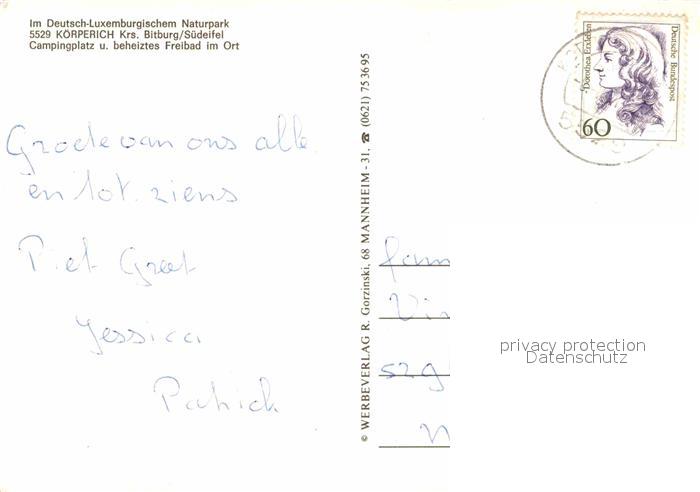 Im Deutsch-Luxemburgischem Naturpark
5529 KÖRPERICH Krs. Bitburg/Südeifel
Campingplatz u. beheiztes Freibad im Ort
Groete van ons alle
en tot ziens
Piet Greet
Jessica
Patrick
© WERBEVERLAG R. Gorzinski, 68 MANNHEIM-31, ☎ (0621) 753695
Dorothea Erxleben
Deutsche Bundespost
60
fam
Vi
privacy protection
Datenschutz